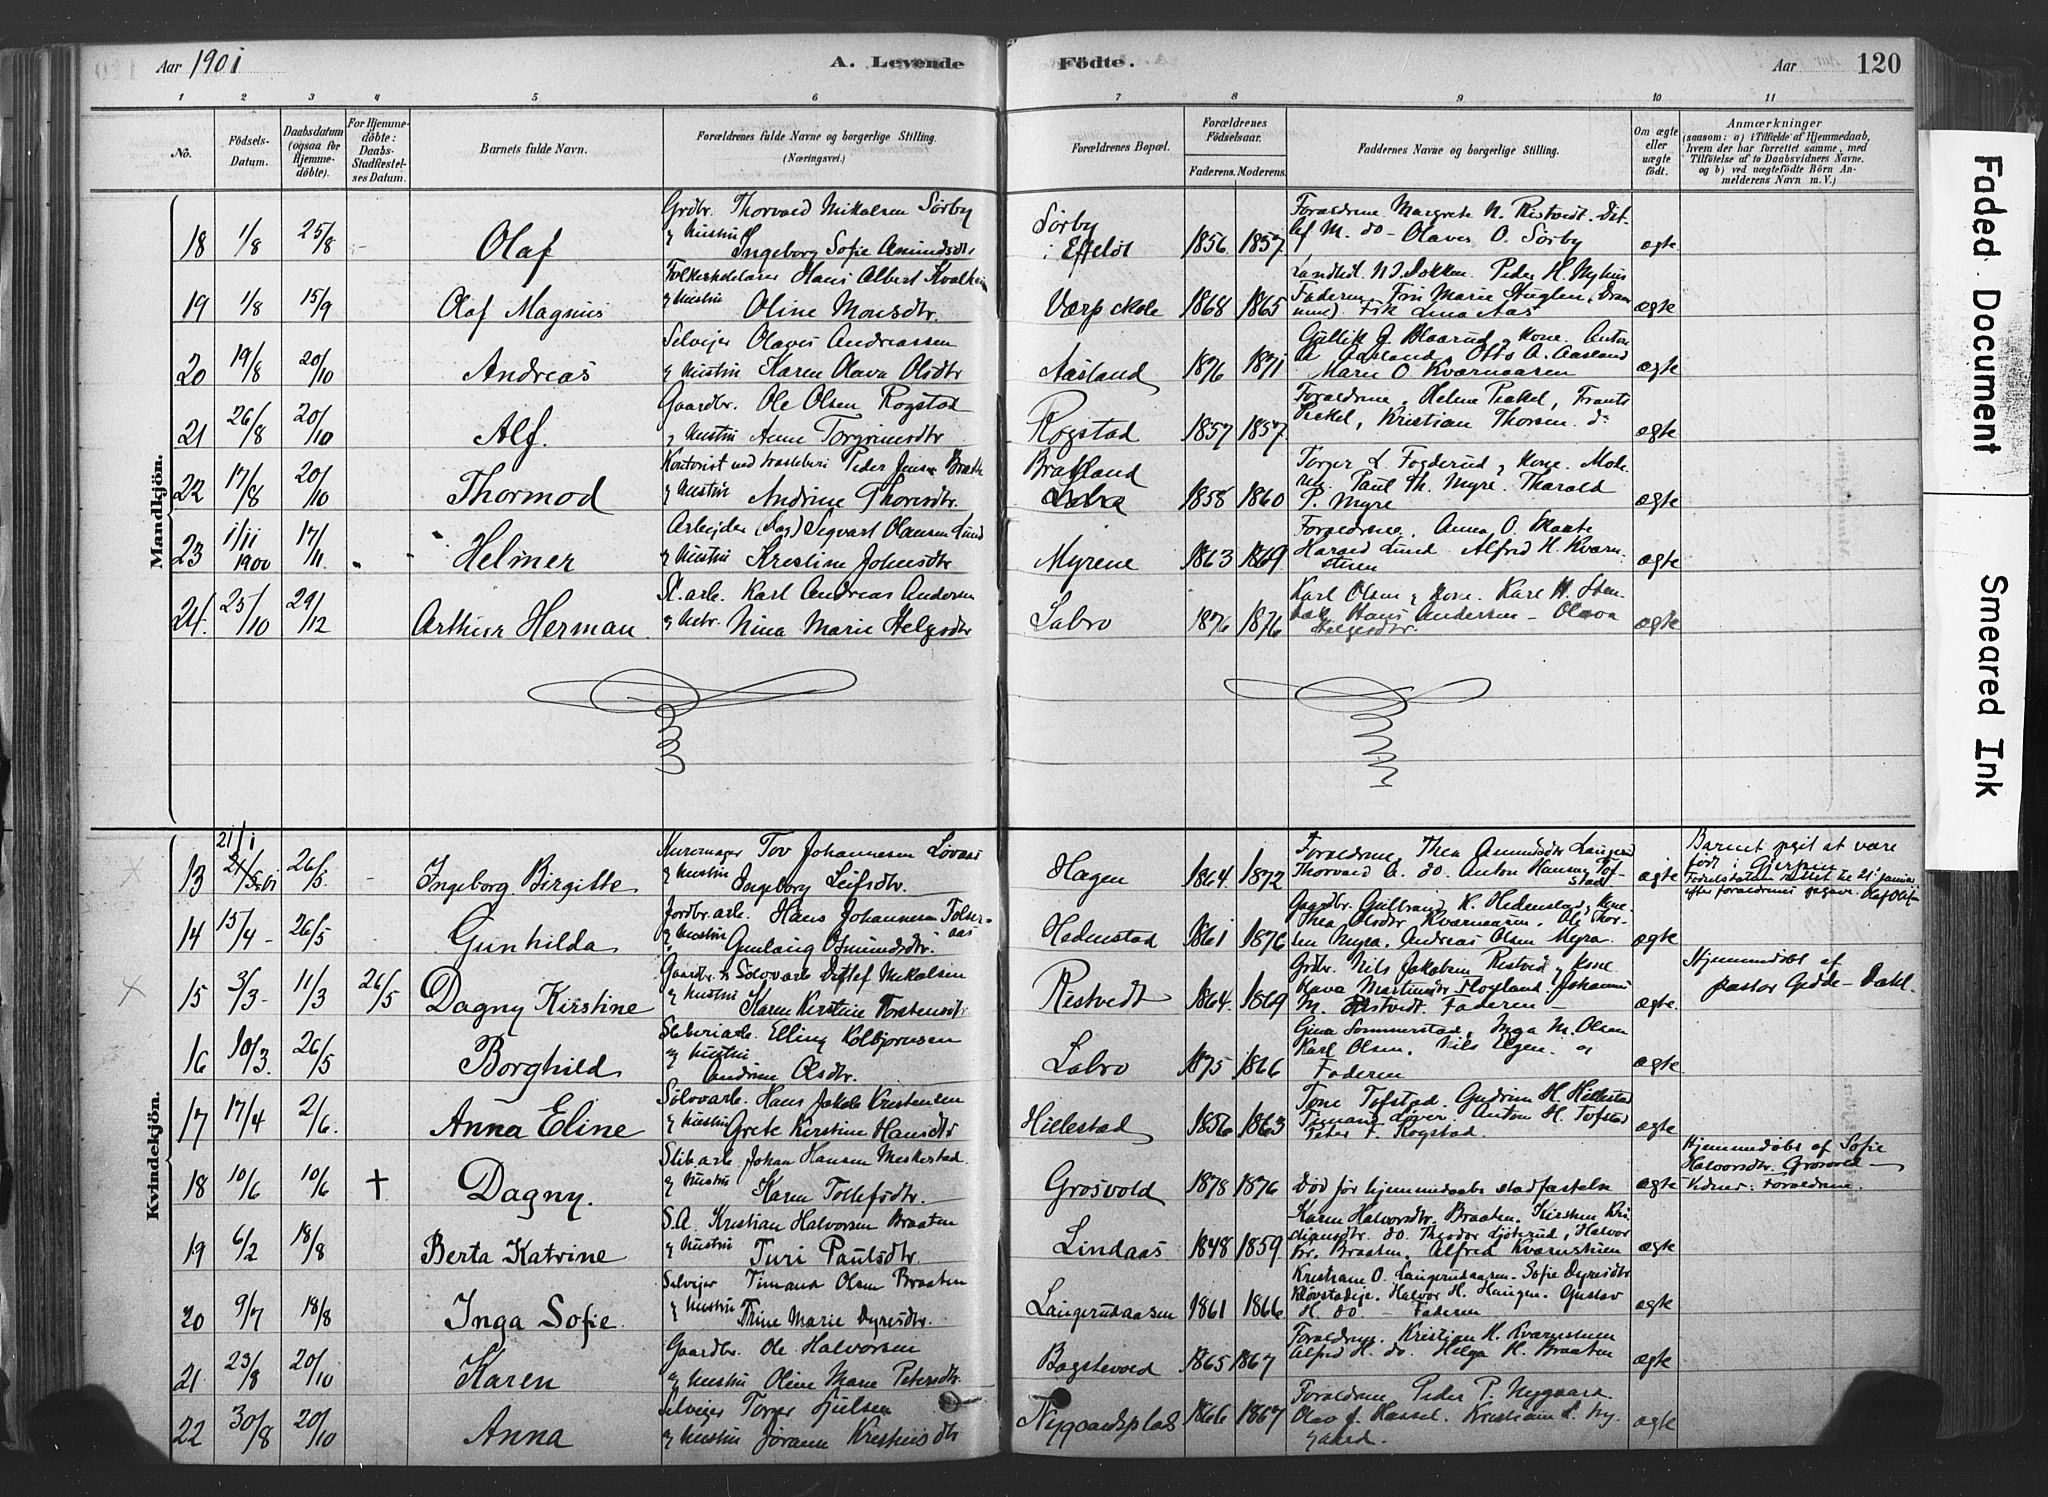 Aar 1901
A. Levende
Födte.
Aar
120
1 2 3 4 5 6 7 8 9 10 11
No.
Födsels-Datum.
Daabsdatum (ogsaa for Hjemme-döbte).
For Hjemme-döbte: Daabs-Stadfæstel-ses Datum.
Barnets fulde Navn.
Forældrenes fulde Navne og borgerlige Stilling.
(Næringsvei.)
Forældrenes Bopæl.
Forældrenes Födselsaar.
Faderens. Moderens.
Faddernes Navne og borgerlige Stilling.
Om ægte eller uægte födt.
Anmærkninger
(saasom: a) i Tilfælde af Hjemmedaab,
hvem der har forrettet samme, med
Tilföielse af to Daabsvidners Navne,
og b) ved uægtefödte Börn An-
melderens Navn m. V.)
Mandkjön.
18 1/8 25/8 Olaf
Grdbr. Thorvald Mikalsen Sørby
og Hustru Ingeborg Sofie Amundsdtr
Sørby i Efteløt 1856 1857
Forældrene. Margrete N. Ristvedt. Det-
lef M. do - Olaves O. Sørby
ægte
19 1/8 15/9 Olaf Magnus
Hans Albert Kvalheim
og Hustru Oline Monsdtr.
Værp skole 1868 1865
Landhdl. N. J. Dokken. Peder H. Myhus
Faderen. Frk Lina Aas
ægte
20 19/8 20/10 Andreas
Selvejer Olaves Andreassen
og Hustru Karen Olava Olsdtr
Aasland 1876 1871
Gullik J. Blaarud og Kone. Anton
A. Aasland, Otto A. Aasland
Marie O. Kværnaasen
ægte
21 26/8 20/10 Alf.
Gaardbr. Ole Olsen Rogstad
og Hustru Anne Torgrimsdtr
Rogstad 1857 1857
Forældrene, Helene Peckel, Frants
Peckel, Kristian Thorsen do
ægte
22 17/8 20/10 Thormod
Kontorist ved træsliberi Peder Jensen
og Hustru Andrine Thoresdtr.
Labro 1858 1860
Torger L. Fogderud og Kone. Mode-
ren. Paul Th. Myre. Tharald
P. Myre
ægte
23 1/11 1900 17/11 Helmer
Arbejder (Dag) Segvart Olausen Lund
og Hustru Kristine Johnsdtr
Myrene 1863 1869
Forældrene, Anna O. Skaate
Harald Lund. Alfred H. Kværn-
stuen
ægte
24. 25/10 29/12 Arthur Herman.
Karl Andreas Andersen
Nina Marie Helgesdtr
Labro 1876 1876
Karl Olsen og Kone. Karl H. Sten-
bæk Hans Andersen - Olava
Helgesdtr.
ægte
Kvindekjön.
13 21/1 26/5 - Ingeborg Birgitte
Tov Johannesen Løvaas
og Hustru Ingeborg Leifsdtr.
Hagen 1864 1872
Forældrene, Thea Amundsdtr Langerud
Thorvald A. do. Anton Hansen Tof-
stad
ægte
Barnet opgit at være
født i Gjerpen
Fødselsdatum rettet til 21 januar
efter forældrenes opgave.
14 15/4 - 26/5 - Gunhilda
Jordbr. arb. Hans Johannesen
og Hustru Gunlaug Osmundsdtr.
Hedenstad 1861 1876
Gaardbr. Gulbrand K. Hedenstad og Kone
Thea Olsdtr Kværnaasen, Ole Thor-
sen Myra, Andreas Olsen Myra.
ægte
15 3/3 - 11/3 26/5 Dagny Kirstine
Gaardbr. og Sølvarb Detlef Mikalsen
og Hustru Karen Kirstine Torstensdtr
Restvedt 1864 1869
Grdbr. Nils Jakobsen Restved og Kone
M. Restvedt. Faderen -
ægte
Hjemmedøbt af
pastor Gedde-Dahl.
16 10/3. 26/5 Borghild
Sliberiarb. Elling Kolbjørnsen
og Hustru Andrine Olsdtr.
Labro 1875 1866
Gina Sommerstad, Inga M. Olsen
Karl Olsen. Nils Elgen. og
Faderen
ægte
17 17/4 2/6. Anna Eline
Sølvarb. Hans Jakob Kristensen
og Hustru Grete Kirstine Hansdtr
Hillestad 1856 1863
Tone Tofstad. Gudrun H. Hillestad
Timand Løver. Anton H. Tofstad
Peter F. Rogstad.
ægte
18 10/6 10/6 † Dagny.
Slib. arb. Johan Hansen Meskestad.
og Hustru Karen Tollefsdtr.
Grosvold 1878 1876
Død før hjemmedaabs stadfæstelse
ægte
Hjemmedøbt af Sofie
Halvorsdtr. Grosvold -
Vidner: Forældrene.
19 6/2 18/8 Berta Katrine
S.A. Kristian Halvorsen Braaten
og Hustru Turi Paulsdtr.
Lindaas 1848 1859
Karen Halvorsdtr. Braaten. Kirsten Kri-
stiansdtr. do. Theodor Ljøterud, Halvor
Kr. Braaten, Alfred Kværnstuen
ægte
20 9/7 18/8 Inga Sofie.
Selvejer Timand Olsen Braaten
og Hustru Trine Marie Dyresdtr.
Langerudaasen 1861 1866
Kristiane O. Langerudaasen - Sofie Dyresdtr
Halvor H. Haugen. Gustav
H. do - Faderen
ægte
21 23/8 20/10 Karen
Gaardbr. Ole Halvorsen
og Hustru Oline Marie Petersdtr.
Bagstevold 1865 1867
Forældrene. Kristian H. Kværnstuen
Alfred H. do. Helga H. Braaten
ægte
22 30/8 20/10 Anna
Selvejer Torger Gjulsen
og Hustru Jørann Krestensdtr
Nygaardsplads 1866 1867
Forældrene, Peder P. Nygaard.
Olav J. Hassel. Kristian L. Ny-
gaard.
ægte
Faded Document
Smeared Ink